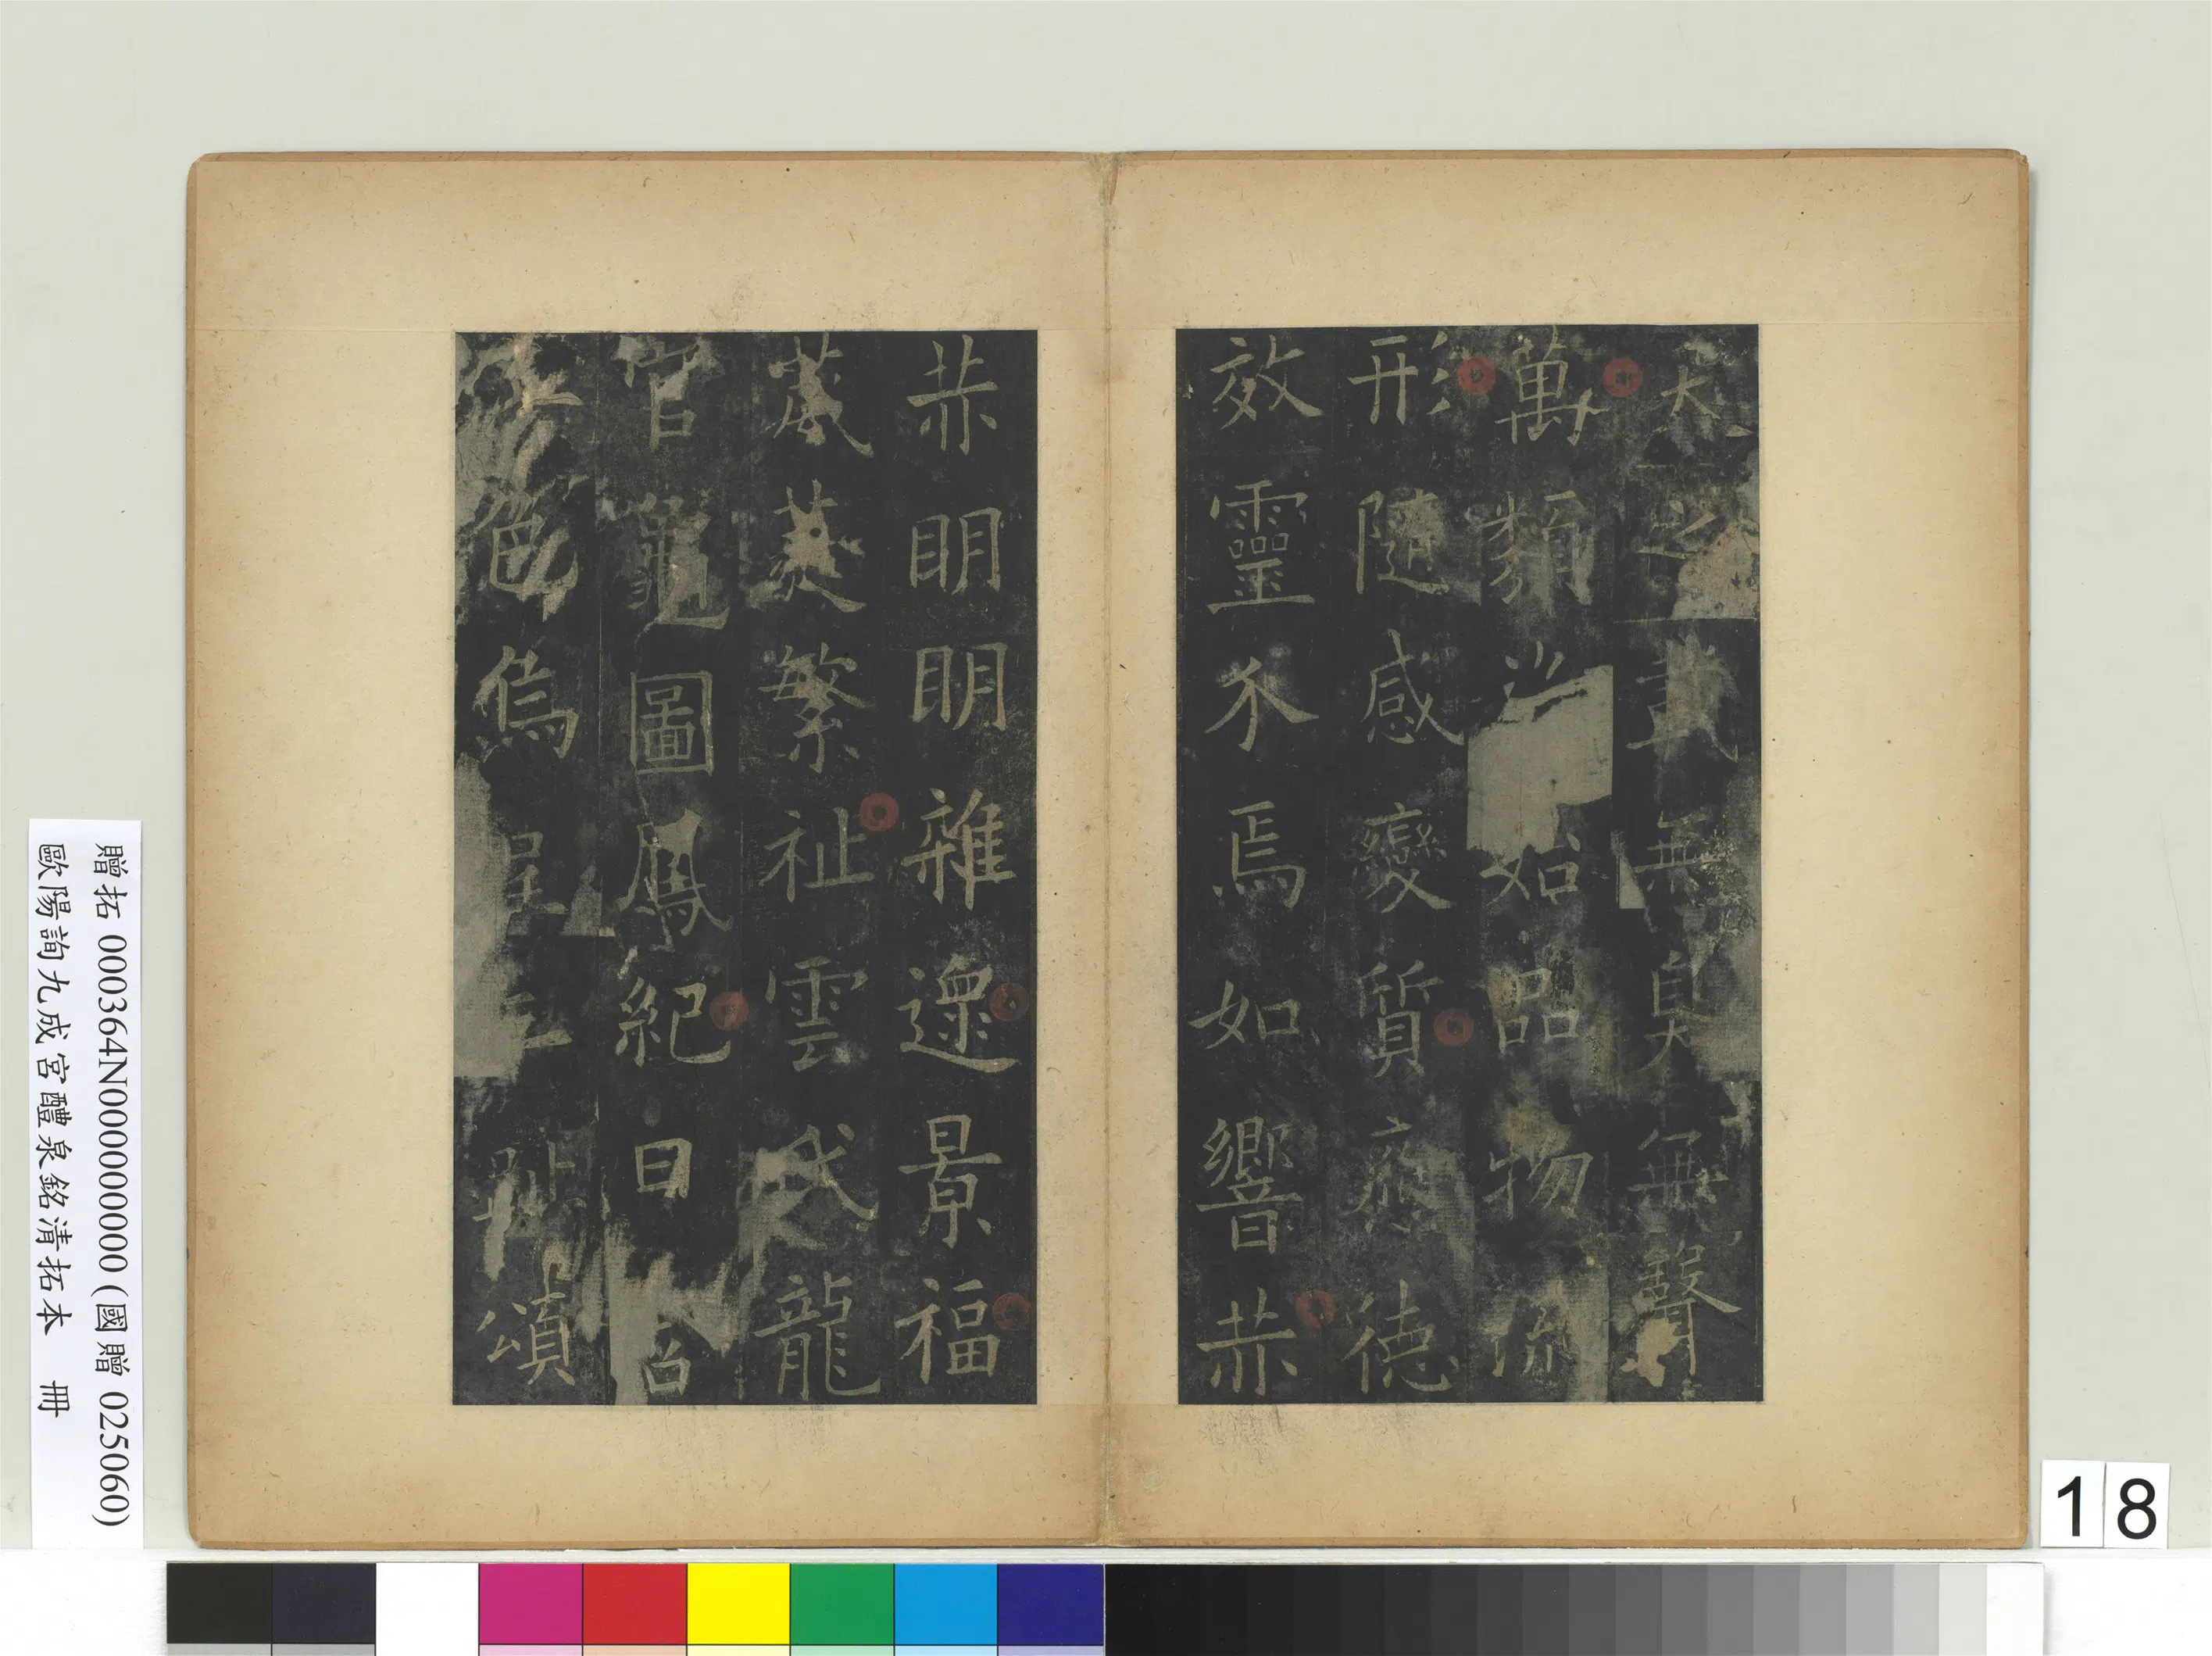 天之載無臭無聲
萬類資始品物流
形隨感變質應德
效靈不焉如響赫
赫明明雜遝景福
葳蕤繁祉雲氏龍
官龜圖鳳紀日含
色烏呈三趾頌
贈拓 000364N000000000 (國贈 025060)
歐陽詢九成宮醴泉銘清拓本 冊
18